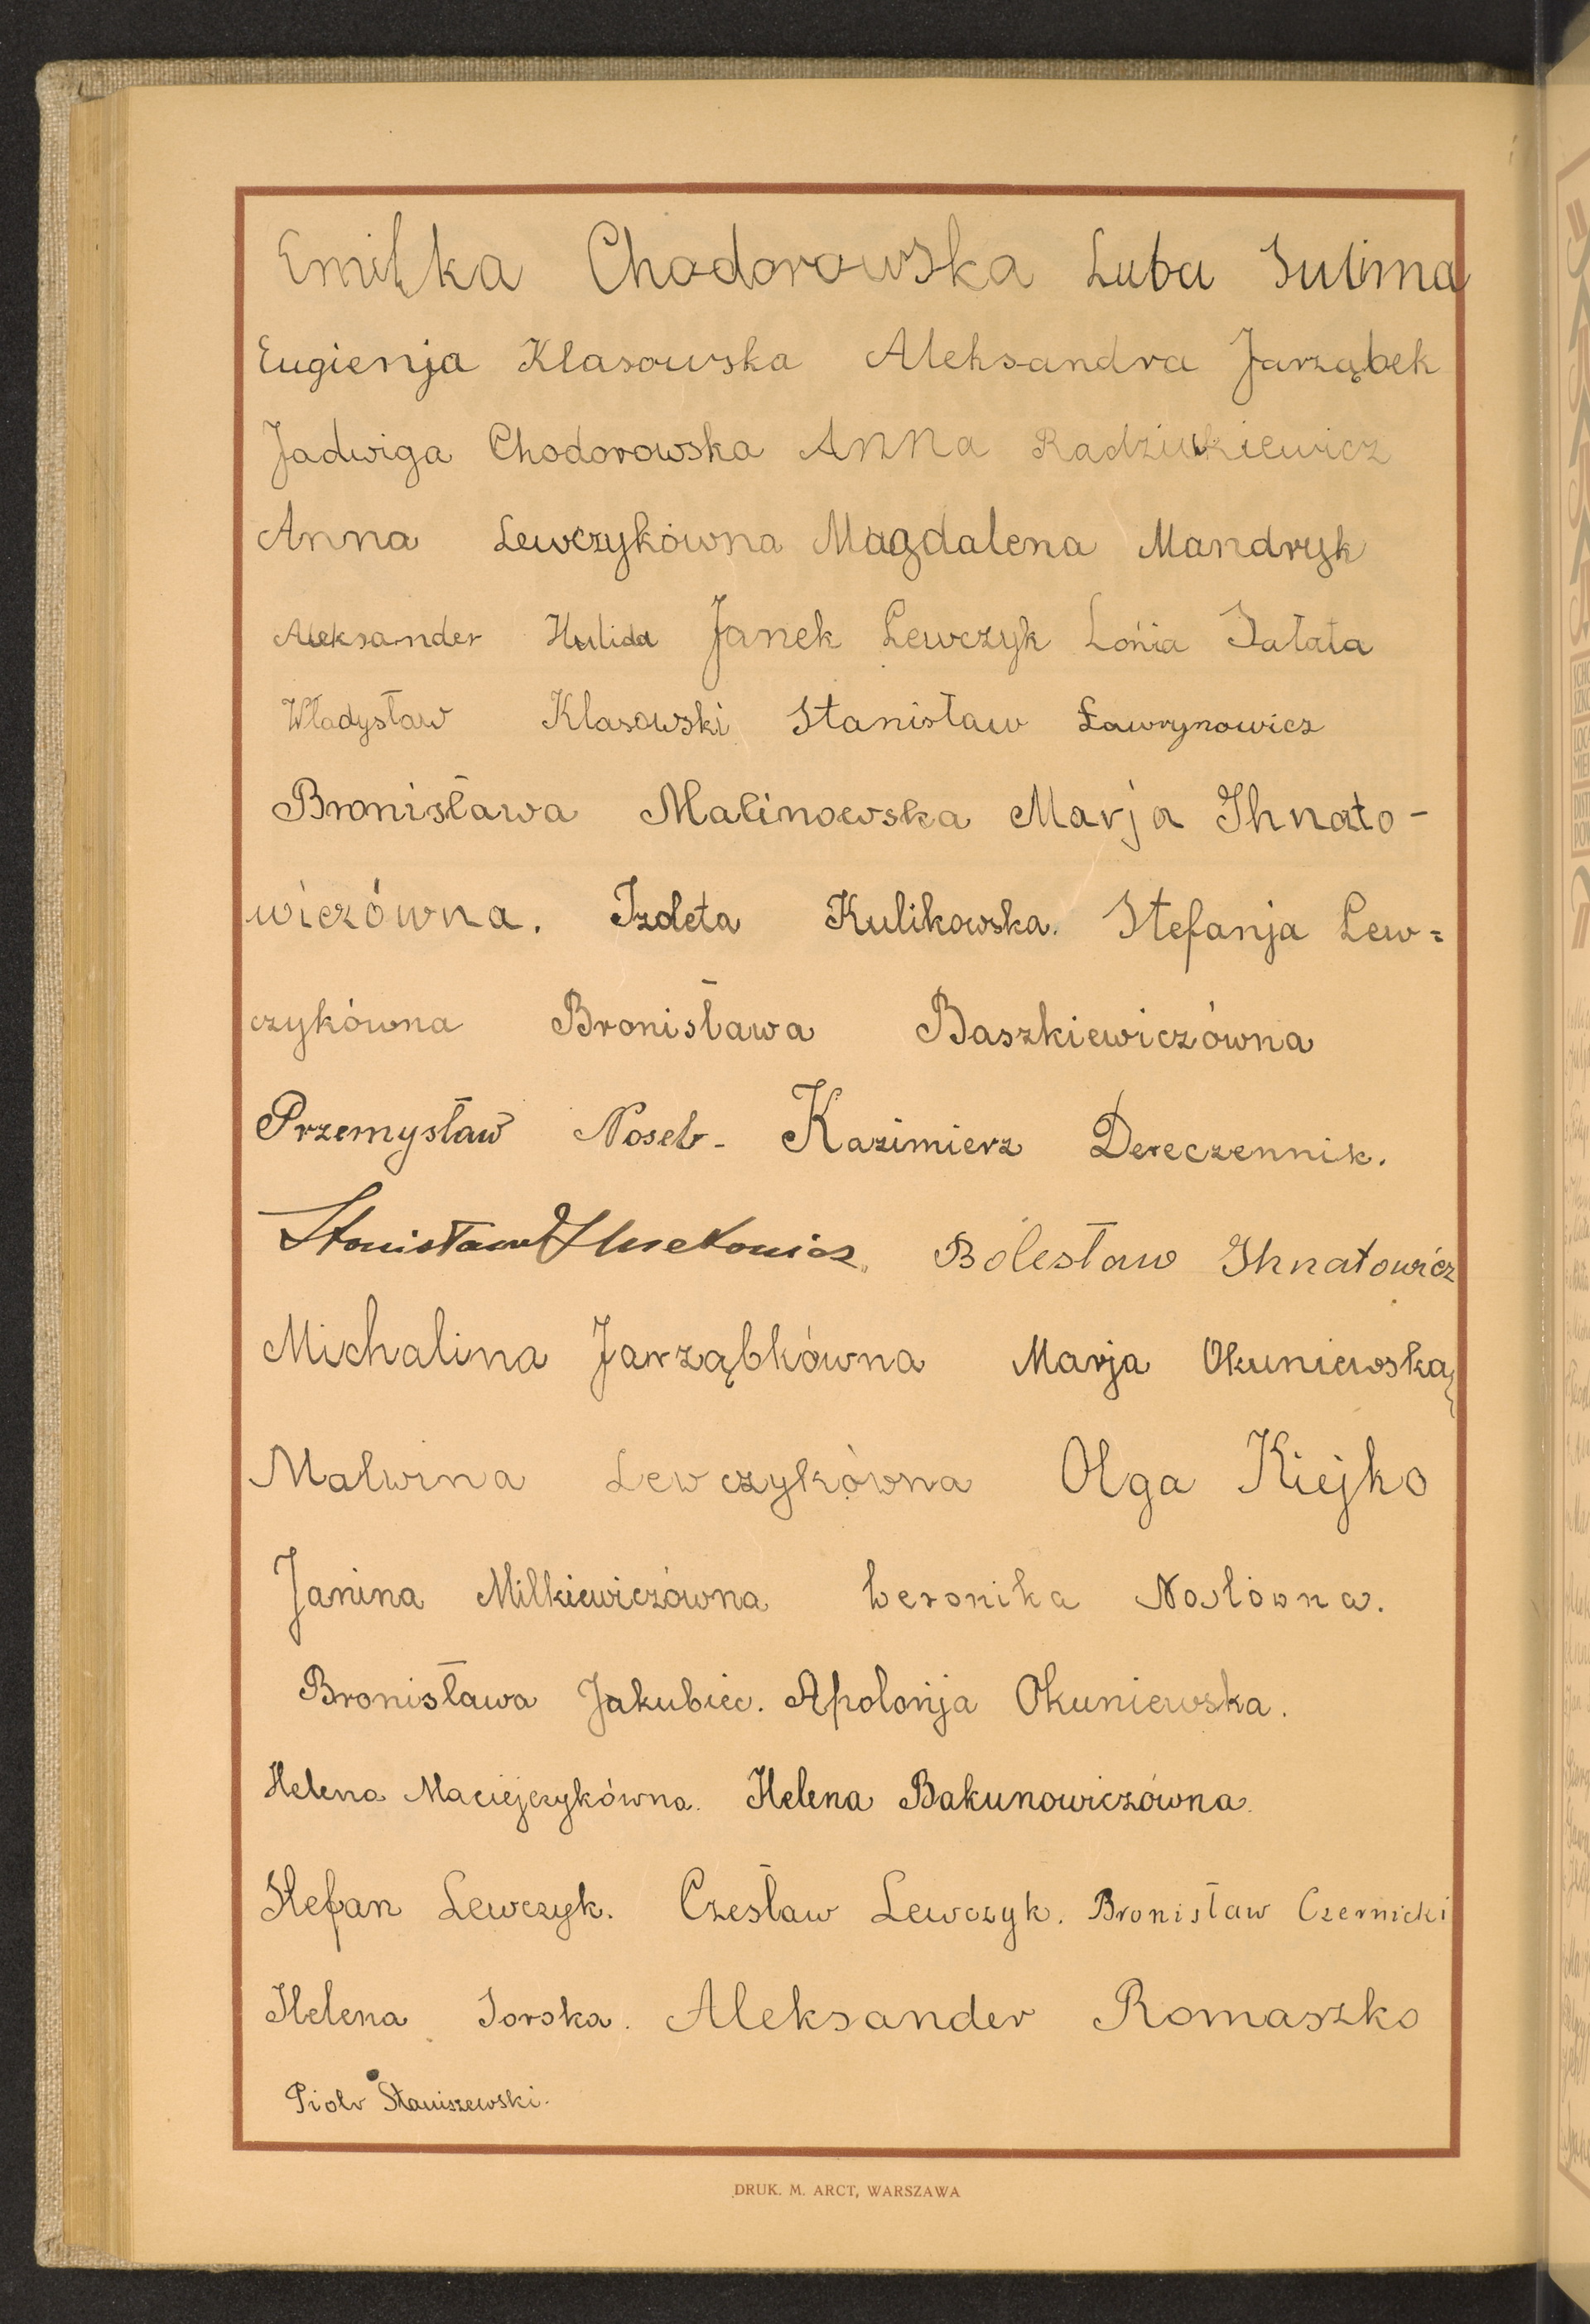 Emilka Chodorowska Luba Sulima
Eugienja Klasowska Aleksandra Jarząbek
Jadwiga Chodorowska Anna Radziukiewicz
Anna Lewczykówna Magdalena Mandryk
Aleksander Hulida Janek Lewczyk Lońia Sałata
Władysław Klasowski Stanisław Ławrynowicz
Bronisława Malinowska Marja Ihnato-
wiczówna. Izdeta Kulikowska. Stefanja Lew=
czykówna Bronisława Baszkiewiczówna
Przemysław Nosel- Kazimierz Dereczennik.
Stanisław Bolesław Ihnatowicz
Michalina Jarząbkówna Marja Okuniewska
Malwina Lewczykówna Olga Kiejko
Janina Milkiewiczówna Weronika Noslówna.
Bronisława Jakubiec. Apolonja Okuniewska.
Helena Maciejczykówna. Helena Bakunowiczówna.
Stefan Lewczyk. Czesław Lewczyk. Bronisław Czernicki
Helena Sorska. Aleksander Romaszko
Piotr Staniszewski.
DRUK. M. ARCT, WARSZAWA